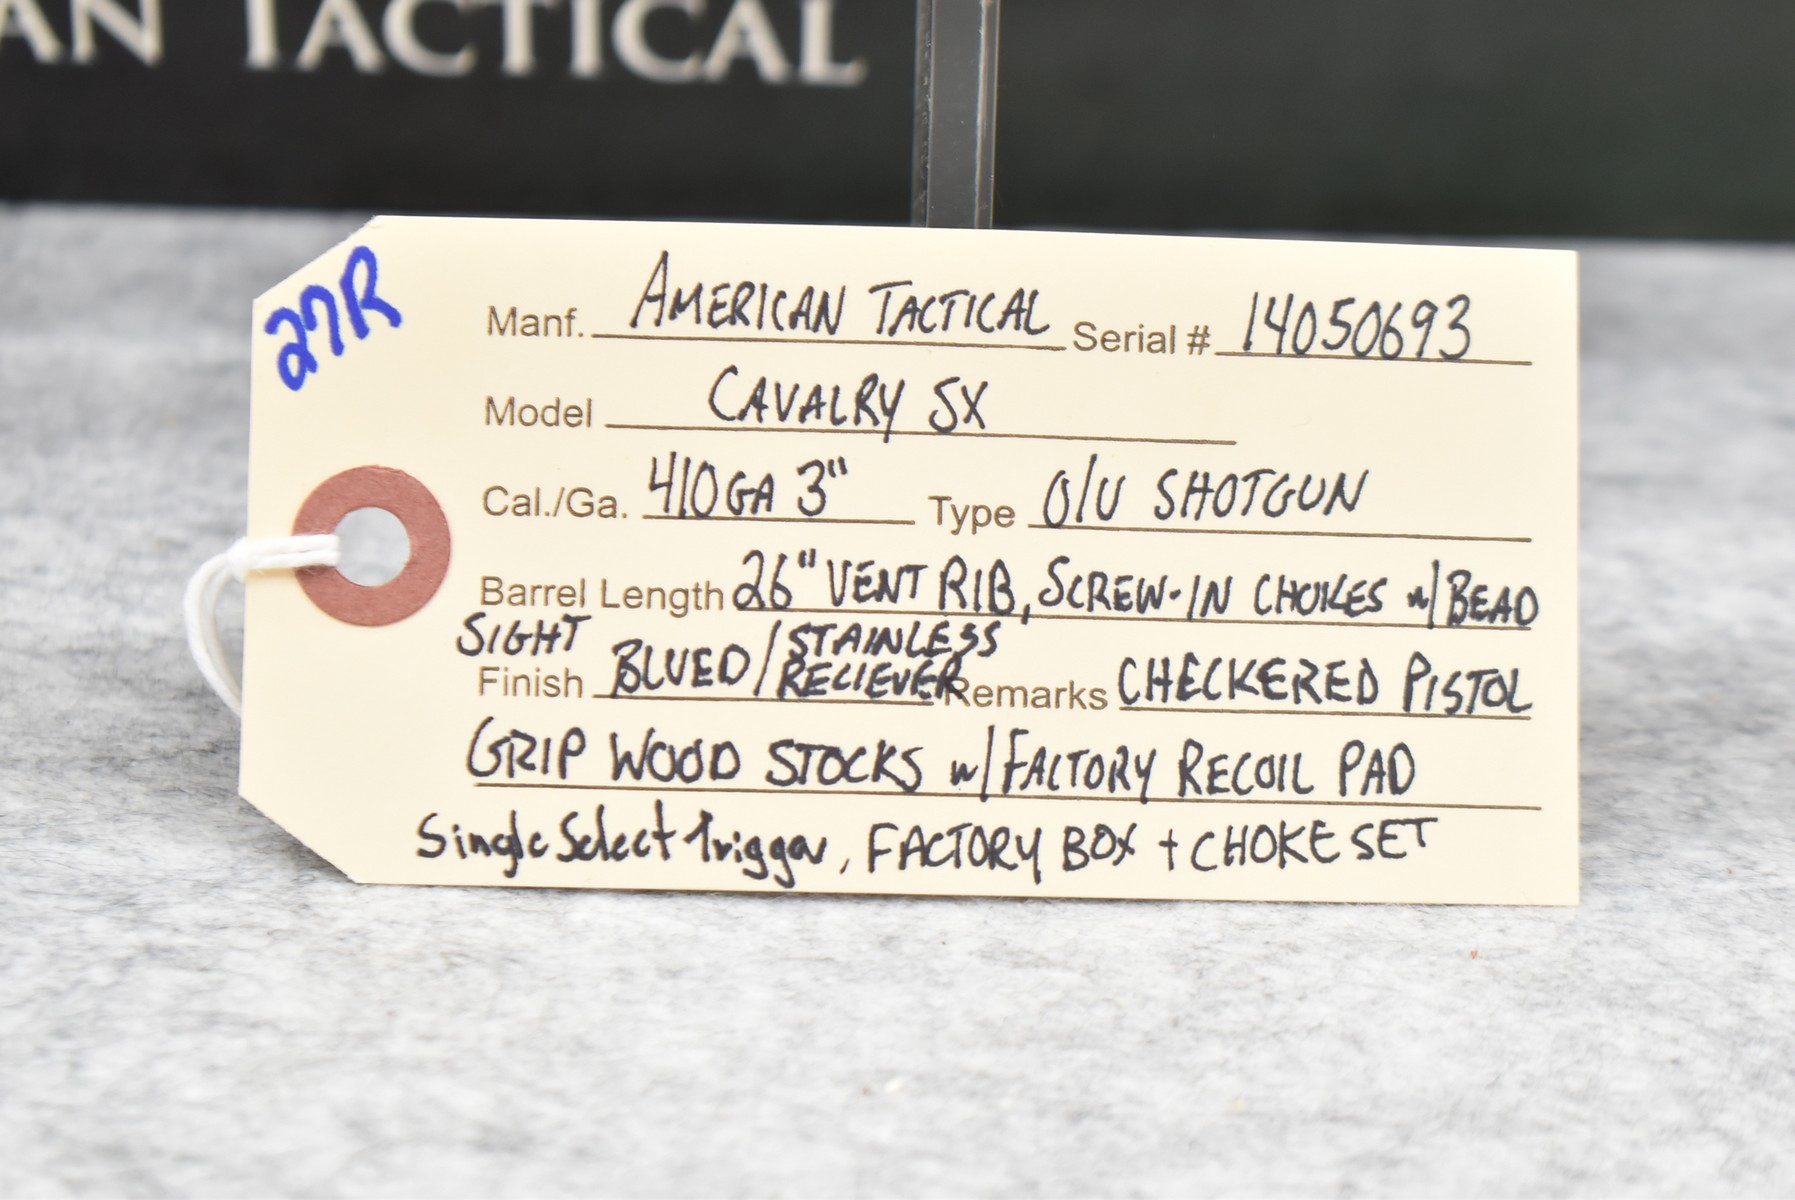 AN TACTICAL
27R
Manf. AMERICAN TACTICAL Serial # 14050693
Model CAVALRY SX
Cal./Ga. 410GA 3" Type O/U SHOTGUN
Barrel Length 26" VENT RIB, SCREW-IN CHOKES w/ BEAD
SIGHT
Finish BLUED/STAINLESS RECIEVER Remarks CHECKERED PISTOL
GRIP WOOD STOCKS w/ FACTORY RECOIL PAD
Single Select Trigger, FACTORY BOX + CHOKE SET